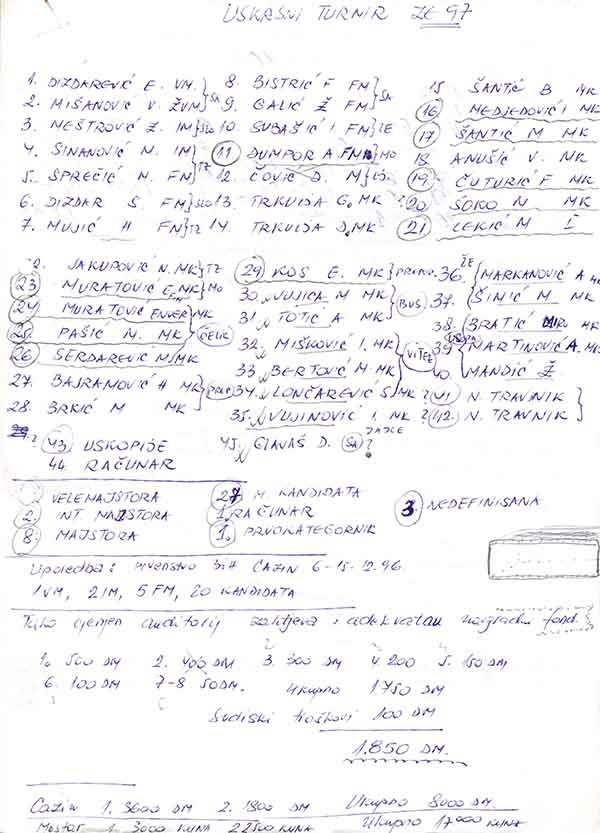 USKRSNI TURNIR ZE 97
1. DIZDAREVIĆ E. VM.
2. MIŠANOVIĆ V. ŽVM } SA
3. MEŠTROVIĆ Z. IM } SLO
4. SINANOVIĆ N. IM } TZ
5. SPREČIĆ N. FM
6. DIZDAR S FM } SLO
7. MUJIĆ H FM } TZ
8. BISTRIĆ F FM
9. GALIĆ Ž FM } SA
10. SUBAŠIĆ I. FM } ZE
11 DUMPOR A. FM } MO
12. ČOVIĆ D. M
13. TRKULJA G. MK
14. TRKULJA D. MK
15 ŠANTIĆ B MK
16 MEDJEDOVIĆ I MK
17 ŠANTIĆ M MK
18. ANUŠIĆ V. MK
19. ČUTURIĆ F MK
20 SOKO N MK
21 LEKIĆ M I
2. JAKUPOVIĆ N. MK } TZ
23 MURATOVIĆ E, FM } MO
24 MURATOVIĆ ENVER MK
25 PAŠIĆ N. MK } ČELIK
26 SERDAREVIĆ M MK
27. BAJRAMOVIĆ H MK
28. BRKIĆ M MK
29. KOS E. MK
30. VUJICA M MK
31. TOTIĆ A MK } BUS
32. MIŠKOVIĆ I. MK
33. BERTOVIĆ M. MK } VITEZ
34. LONČAREVIĆ S. MK
35. VUJINOVIĆ I. MK ?
36. MARKANOVIĆ A MK
37. ŠIMIĆ M MK
38. BRATIĆ MK
39 MARTINOVIĆ A. MK
40. MANDIĆ Ž
41 N. TRAVNIK
42. N. TRAVNIK
43. USKOPIJE
44. RAČUNAR
45. GLAVAŠ D. SA ?
VELEMAJSTORA
2. INT MAJSTORA
8. MAJSTORA
27 M. KANDIDATA
1. RAČUNAR
1. PRVOKATEGORNIK
3. NEDEFINISANA
Uporedba: prvenstvo BiH CAZIN 6-15-12.96
1 VM, 2 IM, 5 FM, 20 KANDIDATA
Tako cijenjen auditorij zahtjeva i adekvatan nagradni fond.
1. 500 DM 2. 400 DM 3. 300 DM 4. 200 5. 150 DM
6. 100 DM 7-8 50 DM. Ukupno 1750 DM
Sudijski troškovi 100 DM
1.850 DM.
Cazin 1. 3600 DM 2. 1800 DM Ukupno 8000 DM.
Mostar 1. 3000 KUNA 2 2500 KUNA Ukupno 17000 KUNA